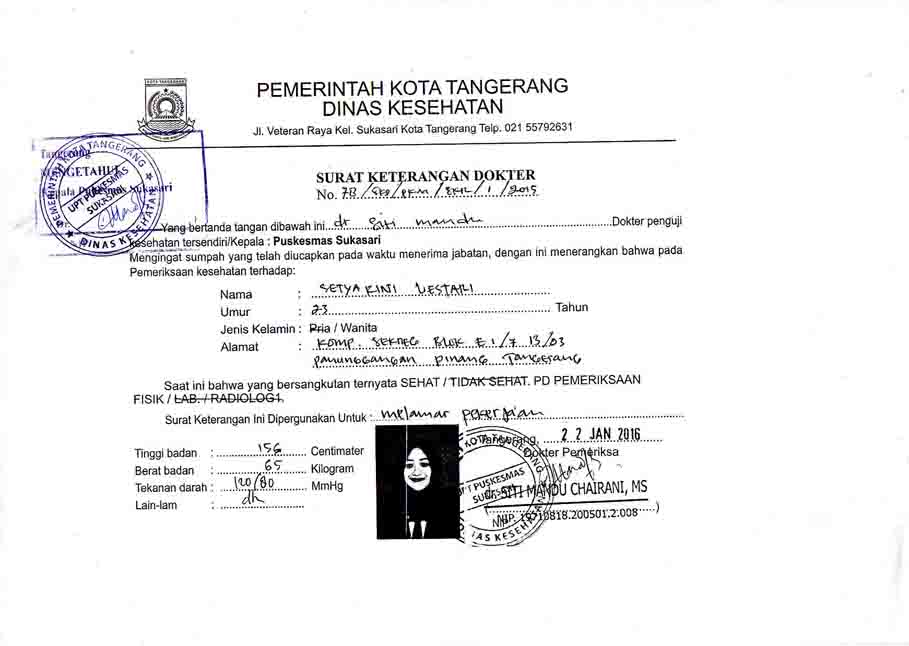 KOTA TANGERANG
PEMERINTAH KOTA TANGERANG
DINAS KESEHATAN
Jl. Veteran Raya Kel. Sukasari Kota Tangerang Telp. 021 55792631
Tangerang
MENGETAHUI
Kepala Puskesmas Sukasari
PEMERINTAH KOTA TANGERANG
UPT PUSKESMAS
SUKASARI
DINAS KESEHATAN
SURAT KETERANGAN DOKTER
No. 7B / SKD / PKM / / 1 / 2015
Yang bertanda tangan dibawah ini dr Siti mandu Dokter penguji
kesehatan tersendiri/Kepala : Puskesmas Sukasari
Mengingat sumpah yang telah diucapkan pada waktu menerima jabatan, dengan ini menerangkan bahwa pada
Pemeriksaan kesehatan terhadap:
Nama : SETYARINI LESTARI
Umur : 23 Tahun
Jenis Kelamin : Pria / Wanita
Alamat : KOMP. SEKNEG BLOK E1/7 13/03
PANUNGGANGAN PINANG TANGERANG
Saat ini bahwa yang bersangkutan ternyata SEHAT / TIDAK SEHAT. PD PEMERIKSAAN
FISIK / LAB. / RADIOLOG1.
Surat Keterangan Ini Dipergunakan Untuk : melamar pekerjaan
Tinggi badan : 156 Centimater
Berat badan : 65 Kilogram
Tekanan darah : 120/80 MmHg
Lain-lam :
Tangerang, 22 JAN 2016
Dokter Pemeriksa
KOTA TANGERANG
UPT PUSKESMAS
DINAS KESEHATAN
dr. SITI MANDU CHAIRANI, MS
NIP. 19710818.200501.2.008